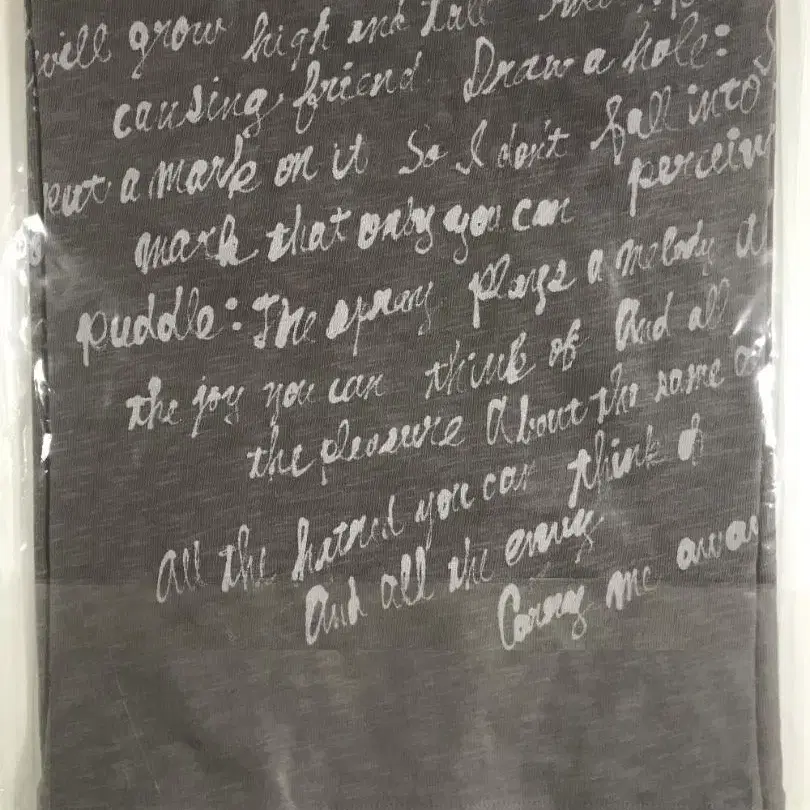 will grow high and tall
causing friend Draw a hole:
put a mark on it So I don't fall into
mark that only you can perceiv
puddle: The spray plays a melody
the joy you can think of And all
the pleasure About the same
All the hatred you can think of
And all the envy
Carry me away